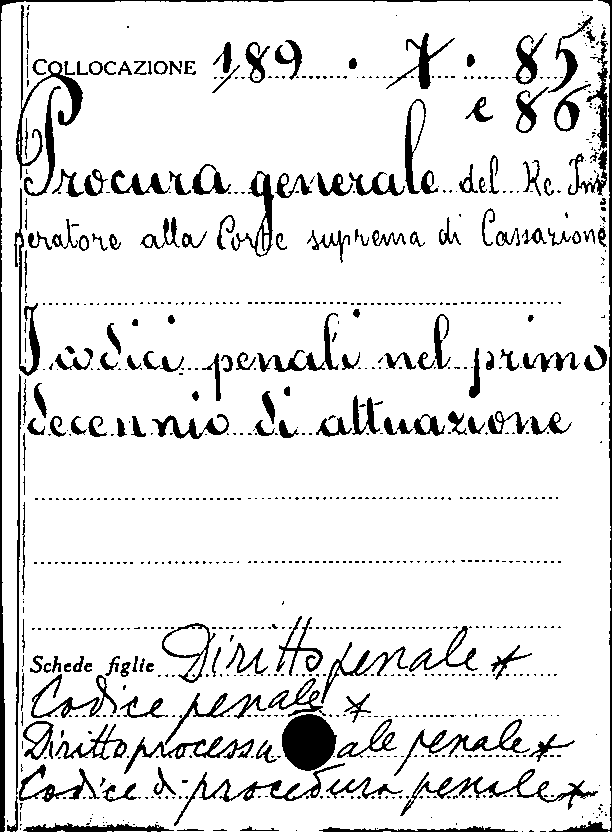 COLLOCAZIONE 189 . 7 . 85
e 86
Procura generale del Re Im
peratore alla Corte suprema di Cassazione
I codici penali nel primo
decennio di attuazione
Schede figlie Diritto penale x
Codice penale x
Diritto processuale penale x
Codice di procedura penale x